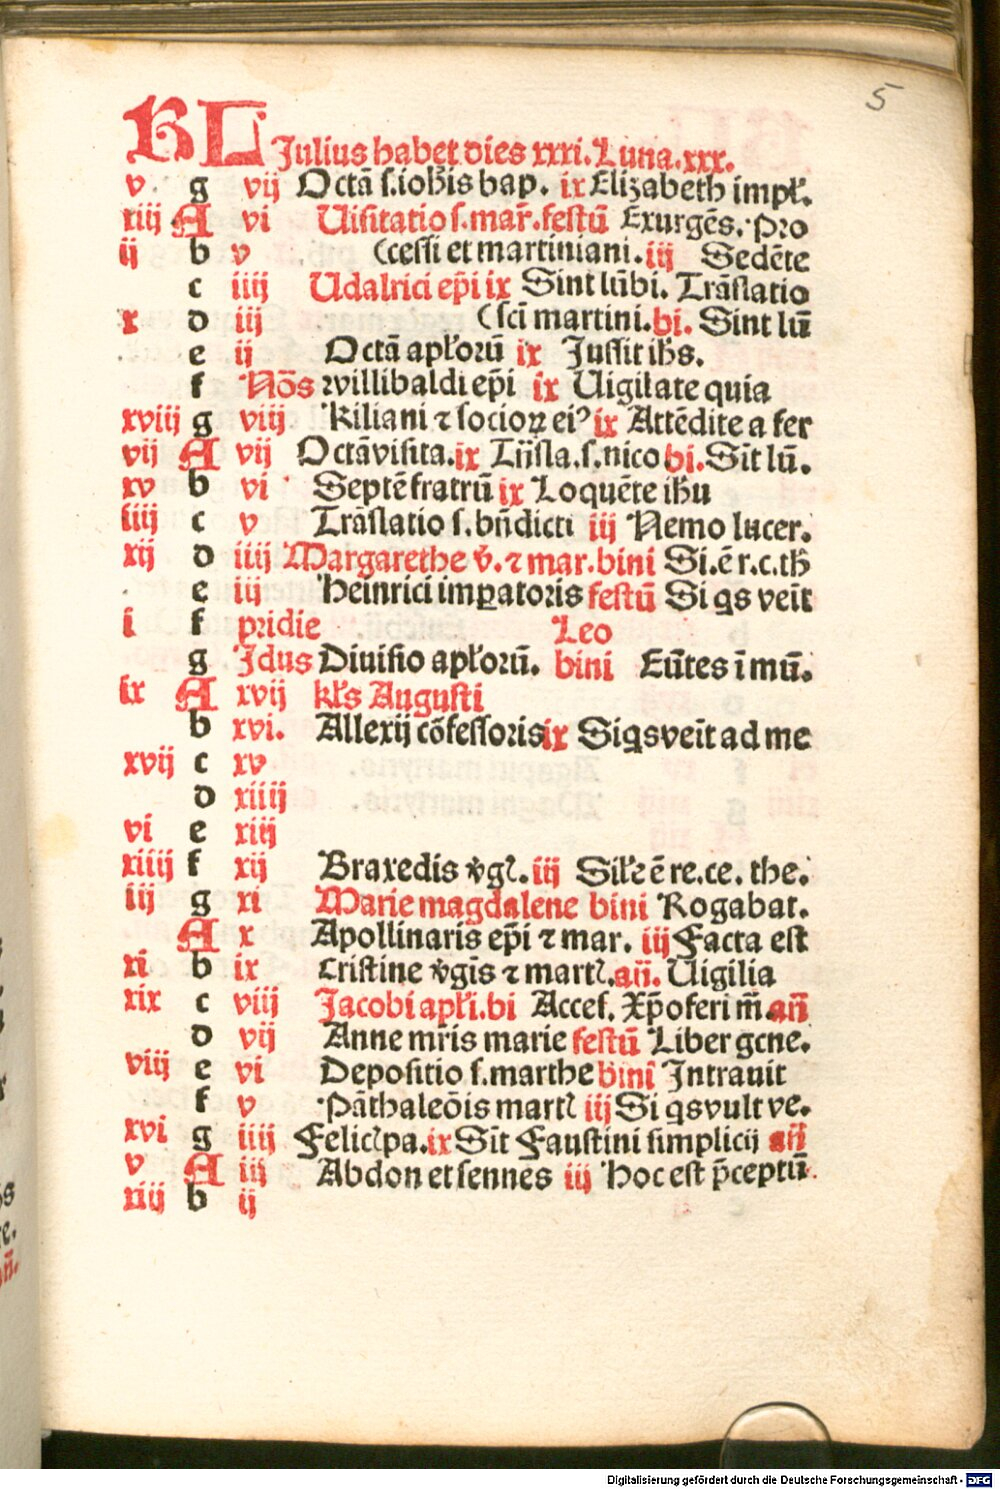 5
KL Julius habet dies xxxi. Luna. xxx.
v g vij Octā s. iohīs bap. ix Elizabeth impł.
xiij A vi Uisitatio s. mar̄. festū Exurgēs. Pro
ij b v (cessi et martiniani. iij Sedēte
c iiij Udalrici ep̄i ix Sint lūbi. Trāslatio
x d iij (scī martini. bi. Sint lū
e ij Octā apłorū ix Jussit ihs.
f Nōs willibaldi ep̄i ix Uigilate quia
xviij g viij Kiliani ⁊ socioꝝ eiꝰ ix Attēdite a fer
vij A vij Octā visita. ix Trāsla. s. nico bi. Sīt lū.
xv b vi Septē fratrū ix Loquēte ihū
iiij c v Trāslatio s. bn̄dicti iij Nemo lucer.
xij d iiij Margarethe v̄. ⁊ mar. bini Si. ē r. c. th
e iij Heinrici imꝑatoris festū Si qs veīt
i f pridie Leo
g Jdus Diuisio apłorū. bini Eūtes ī mū.
ix A xvij kł's Augusti
b xvi. Allexij cōfessoris ix Si qs veīt ad me
xvij c xv
d xiiij
vi e xiij
xiiij f xij Braxedis v̄gꝭ. iij Siłe ē re. ce. the.
iij g xi Marie magdalene bini Rogabat.
A x Apollinaris ep̄i ⁊ mar. iij Facta est
xi b ix Cristine v̄gīs ⁊ martꝭ. an̄. Uigilia
xix c viij Jacobi apłi. bi Accef. Xp̄oferi m̄ an̄
d vij Anne mr̄is marie festū Liber gene.
viij e vi Depositio s. marthe bini Intrauit
f v Pāthaleōis martꝭ iij Si qs vult ve.
xvi g iiij Felicꝭ pa. ix Sīt Faustini simplicij an̄
v A iij Abdon et sennes iij Hoc est p̄ceptū.
xiij b ij
Digitalisierung gefördert durch die Deutsche Forschungsgemeinschaft - DFG